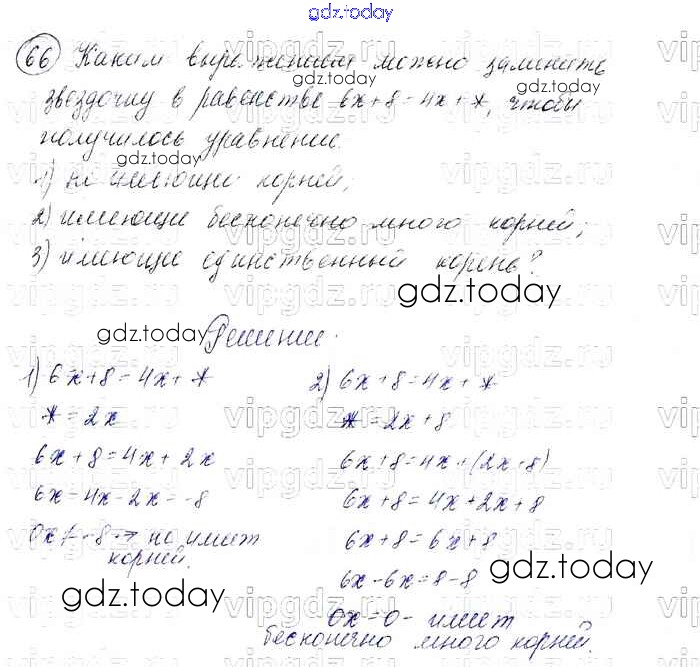 gdz.today
66 Каким выражением можно заменить
gdz.today
звездочку в равенстве 6x+8=4x+*, чтобы
получилось уравнение.
gdz.today
1) не имеющие корней;
2) имеющие бесконечно много корней;
3) имеющие единственный корень?
gdz.today
gdz.today
Решение.
1) 6x+8=4x+*
* = 2x
6x+8=4x+2x
6x-4x-2x=-8
0x≠-8 → не имеет
корней.
2) 6x+8=4x+*
* =2x+8
6x+8=4x+(2x+8)
6x+8=4x+2x+8
6x+8=6x+8
6x-6x=8-8
0x=0- имеет
бесконечно много корней.
gdz.today
gdz.today
vipgdz.ru vipgdz.ru vipgdz.ru